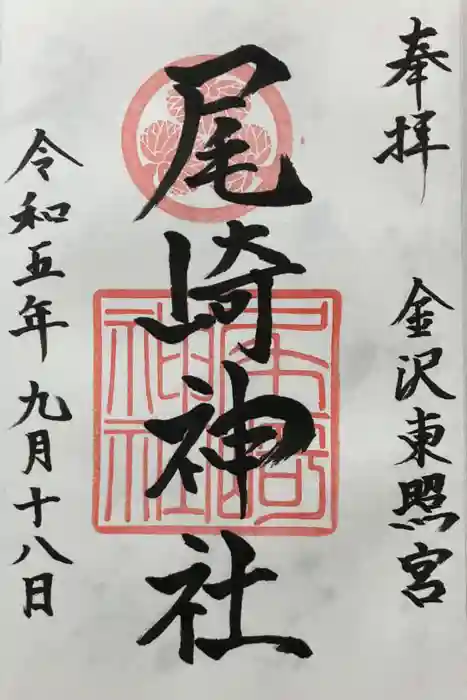 奉拝
金沢東照宮
尾崎神社
尾崎
神社
令和五年九月十八日